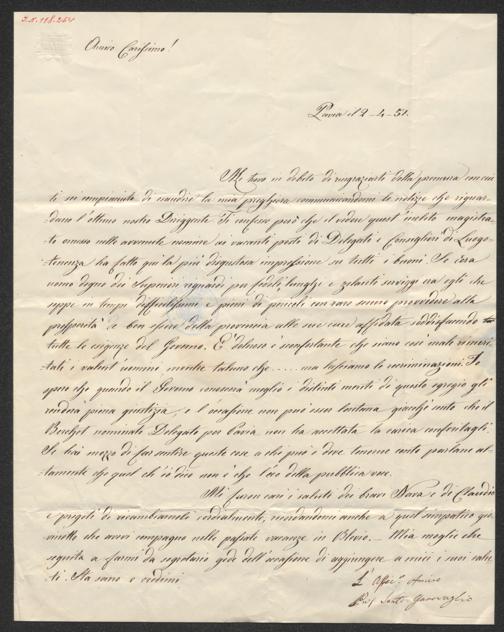 Amico Carissimo!
Pavia il 2-4-51.
Mi trovo in debito di ringraziarti della premura con cui
ti compiacesti di esaudire la mia preghiera communicandomi le notizie che riguar-
dano l'ottimo nostro Dirigente. Ti confesso però che il vedere quest'inclito magistra-
to omesso nelle avvenute nomine ai vacanti posti di Delegato e Consiglieri di Luogo-
tenenza ha fatto qui la più disgustosa impressione in tutti i buoni. Se era
uomo degno dei Superiori riguardi per fedeli, lunghi e zelanti servigi era egli che
seppe in tempi difficilissimi e pieni di pericoli con raro senno provvedere alla
prosperità e ben essere della provincia alle sue cure affidata soddisfacendo
tutte le esigenze del Governo. È doloroso e sconfortante che siano così male rimeri-
tati i valent'uomini, mentre taluno che .... ma lasciamo le recriminazioni. Io
spero che quando il Governo conoscerà meglio i distinti meriti di questo egregio gli
renderà piena giustizia, e l'occasione non può esser lontana giacché sento che il
nominato Delegato per Pavia non ha accettata la carica
Se hai mezzo di far sentire queste cose a chi può e deve tenerne conto parlane al-
tamente che quel ch'io dico non è che l'eco della pubblica voce.
Mi furon cari i saluti dei bravi Nava e di Claudio
e pregoti di ricambiarneli cordialmente, ricordandomi anche a quel simpatico gio-
vinotto che avevi compagno nelle passate vacanze in Blevio. Mia moglie che
seguita a farmi da segretario gode dell'occasione di aggiungere a miei i suoi salu-
ti. Sta sano e credimi
L'Affez. Amico
Prof. Santo Garovaglio